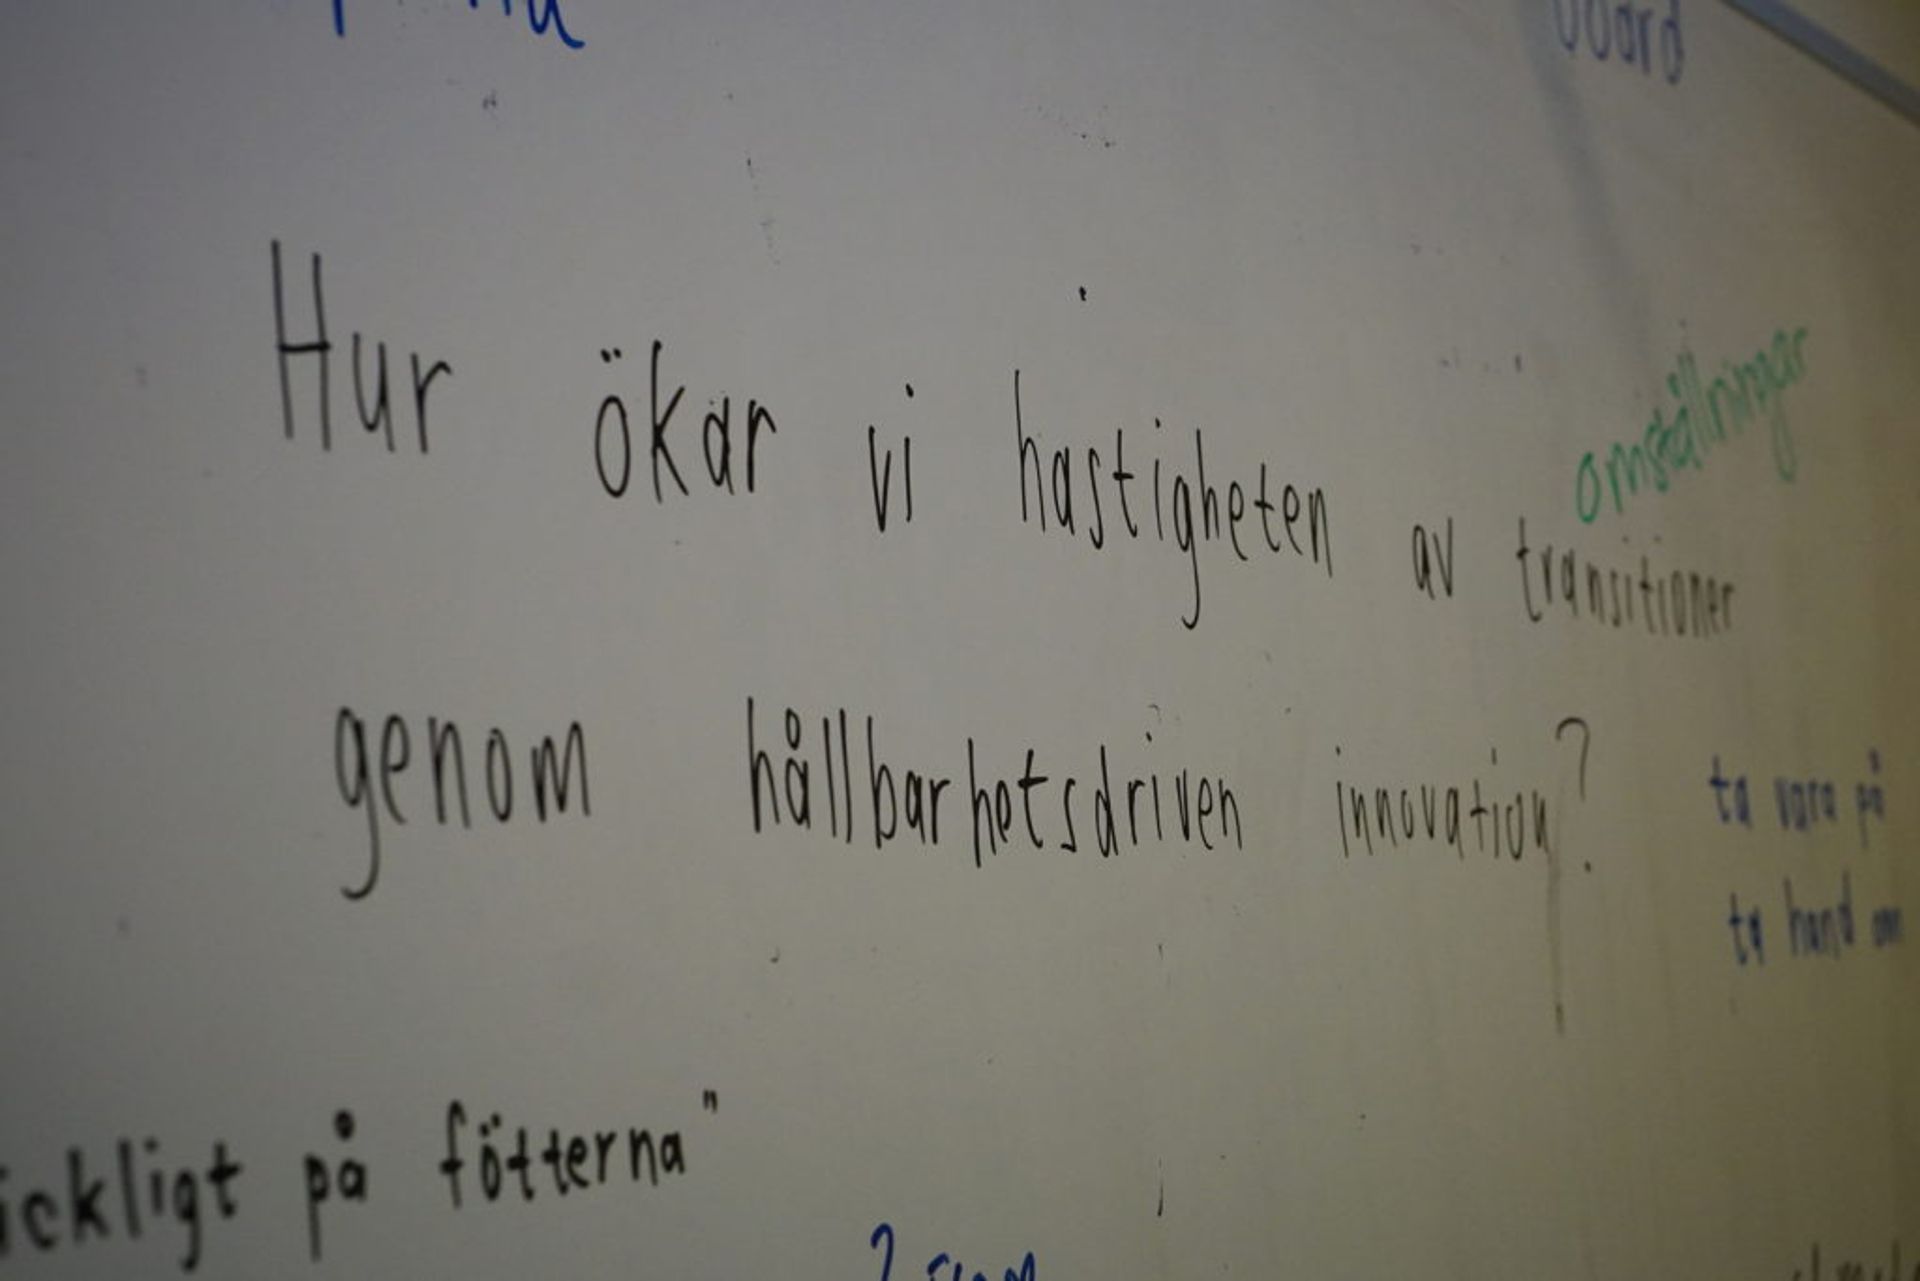 board
omställningar
Hur ökar vi hastigheten av transitioner
genom hållbarhetsdriven innovation?
ta vara på
ta hand om
på fötterna"